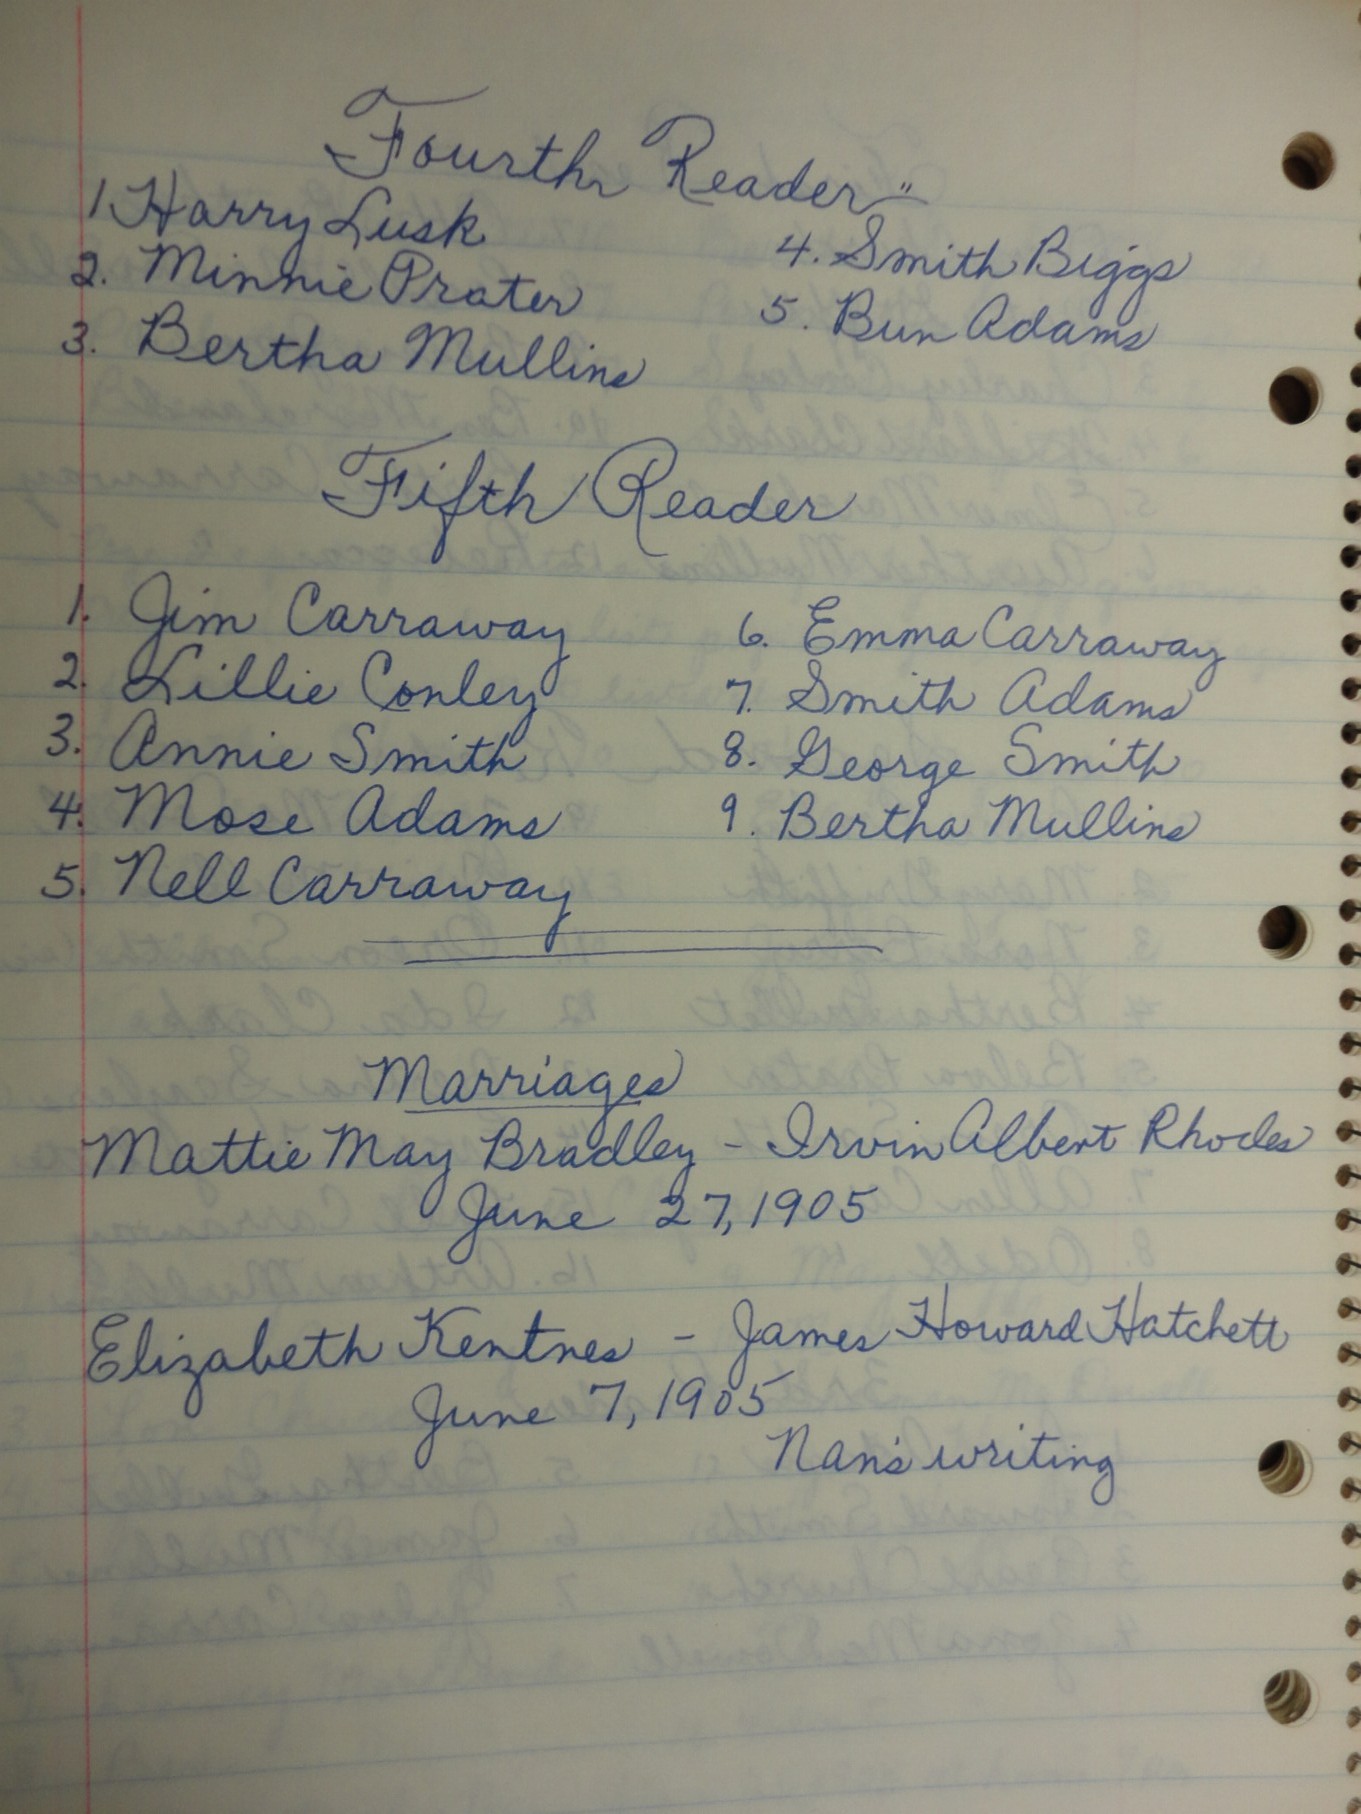 Fourth Reader "
1 Harry Lusk
2. Minnie Prater
3. Bertha Mullins
4. Smith Biggs
5. Bun Adams
Fifth Reader
1. Jim Carraway
2. Lillie Conley
3. Annie Smith
4. Mose Adams
5. Nell Carraway
6. Emma Carraway
7. Smith Adams
8. George Smith
9. Bertha Mullins
Marriages
Mattie May Bradley - Irvin Albert Rhodes
June 27, 1905
Elizabeth Kentnes - James Howard Hatchett
June 7, 1905
Nan's writing